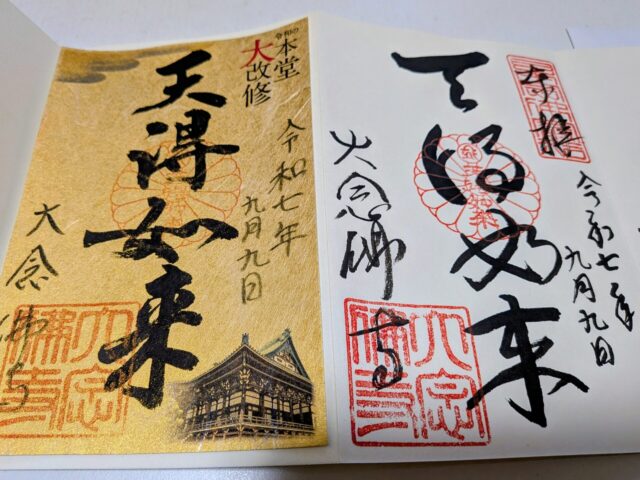 奉拝
令和七年
九月九日
天得如来
大念佛寺
大念
佛寺
令和の
本堂
大改修
令和七年
九月九日
天得如来
大念佛寺
大念
佛寺